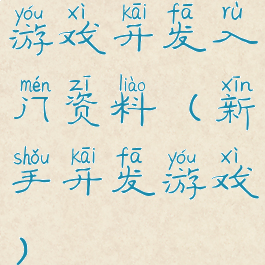 yóu xì kāi fā rù
游戏开发入
mén zī liào xīn
门资料（新
shǒu kāi fā yóu xì
手开发游戏
）